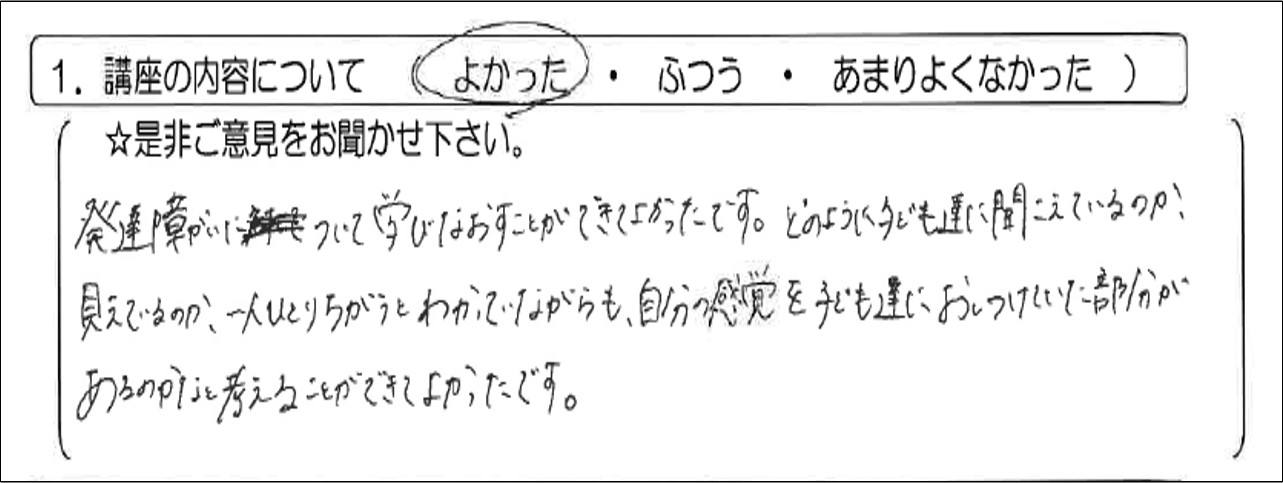 1. 講座の内容について （ よかった ・ ふつう ・ あまりよくなかった ）
☆是非ご意見をお聞かせ下さい。
発達障がいについて学びなおすことができてよかったです。どのように子ども達に聞こえているのか、
見えているのか、一人ひとりちがうとわかっていながらも、自分の感覚を子ども達に、おしつけていた部分が
あるのかなと考えることができてよかったです。